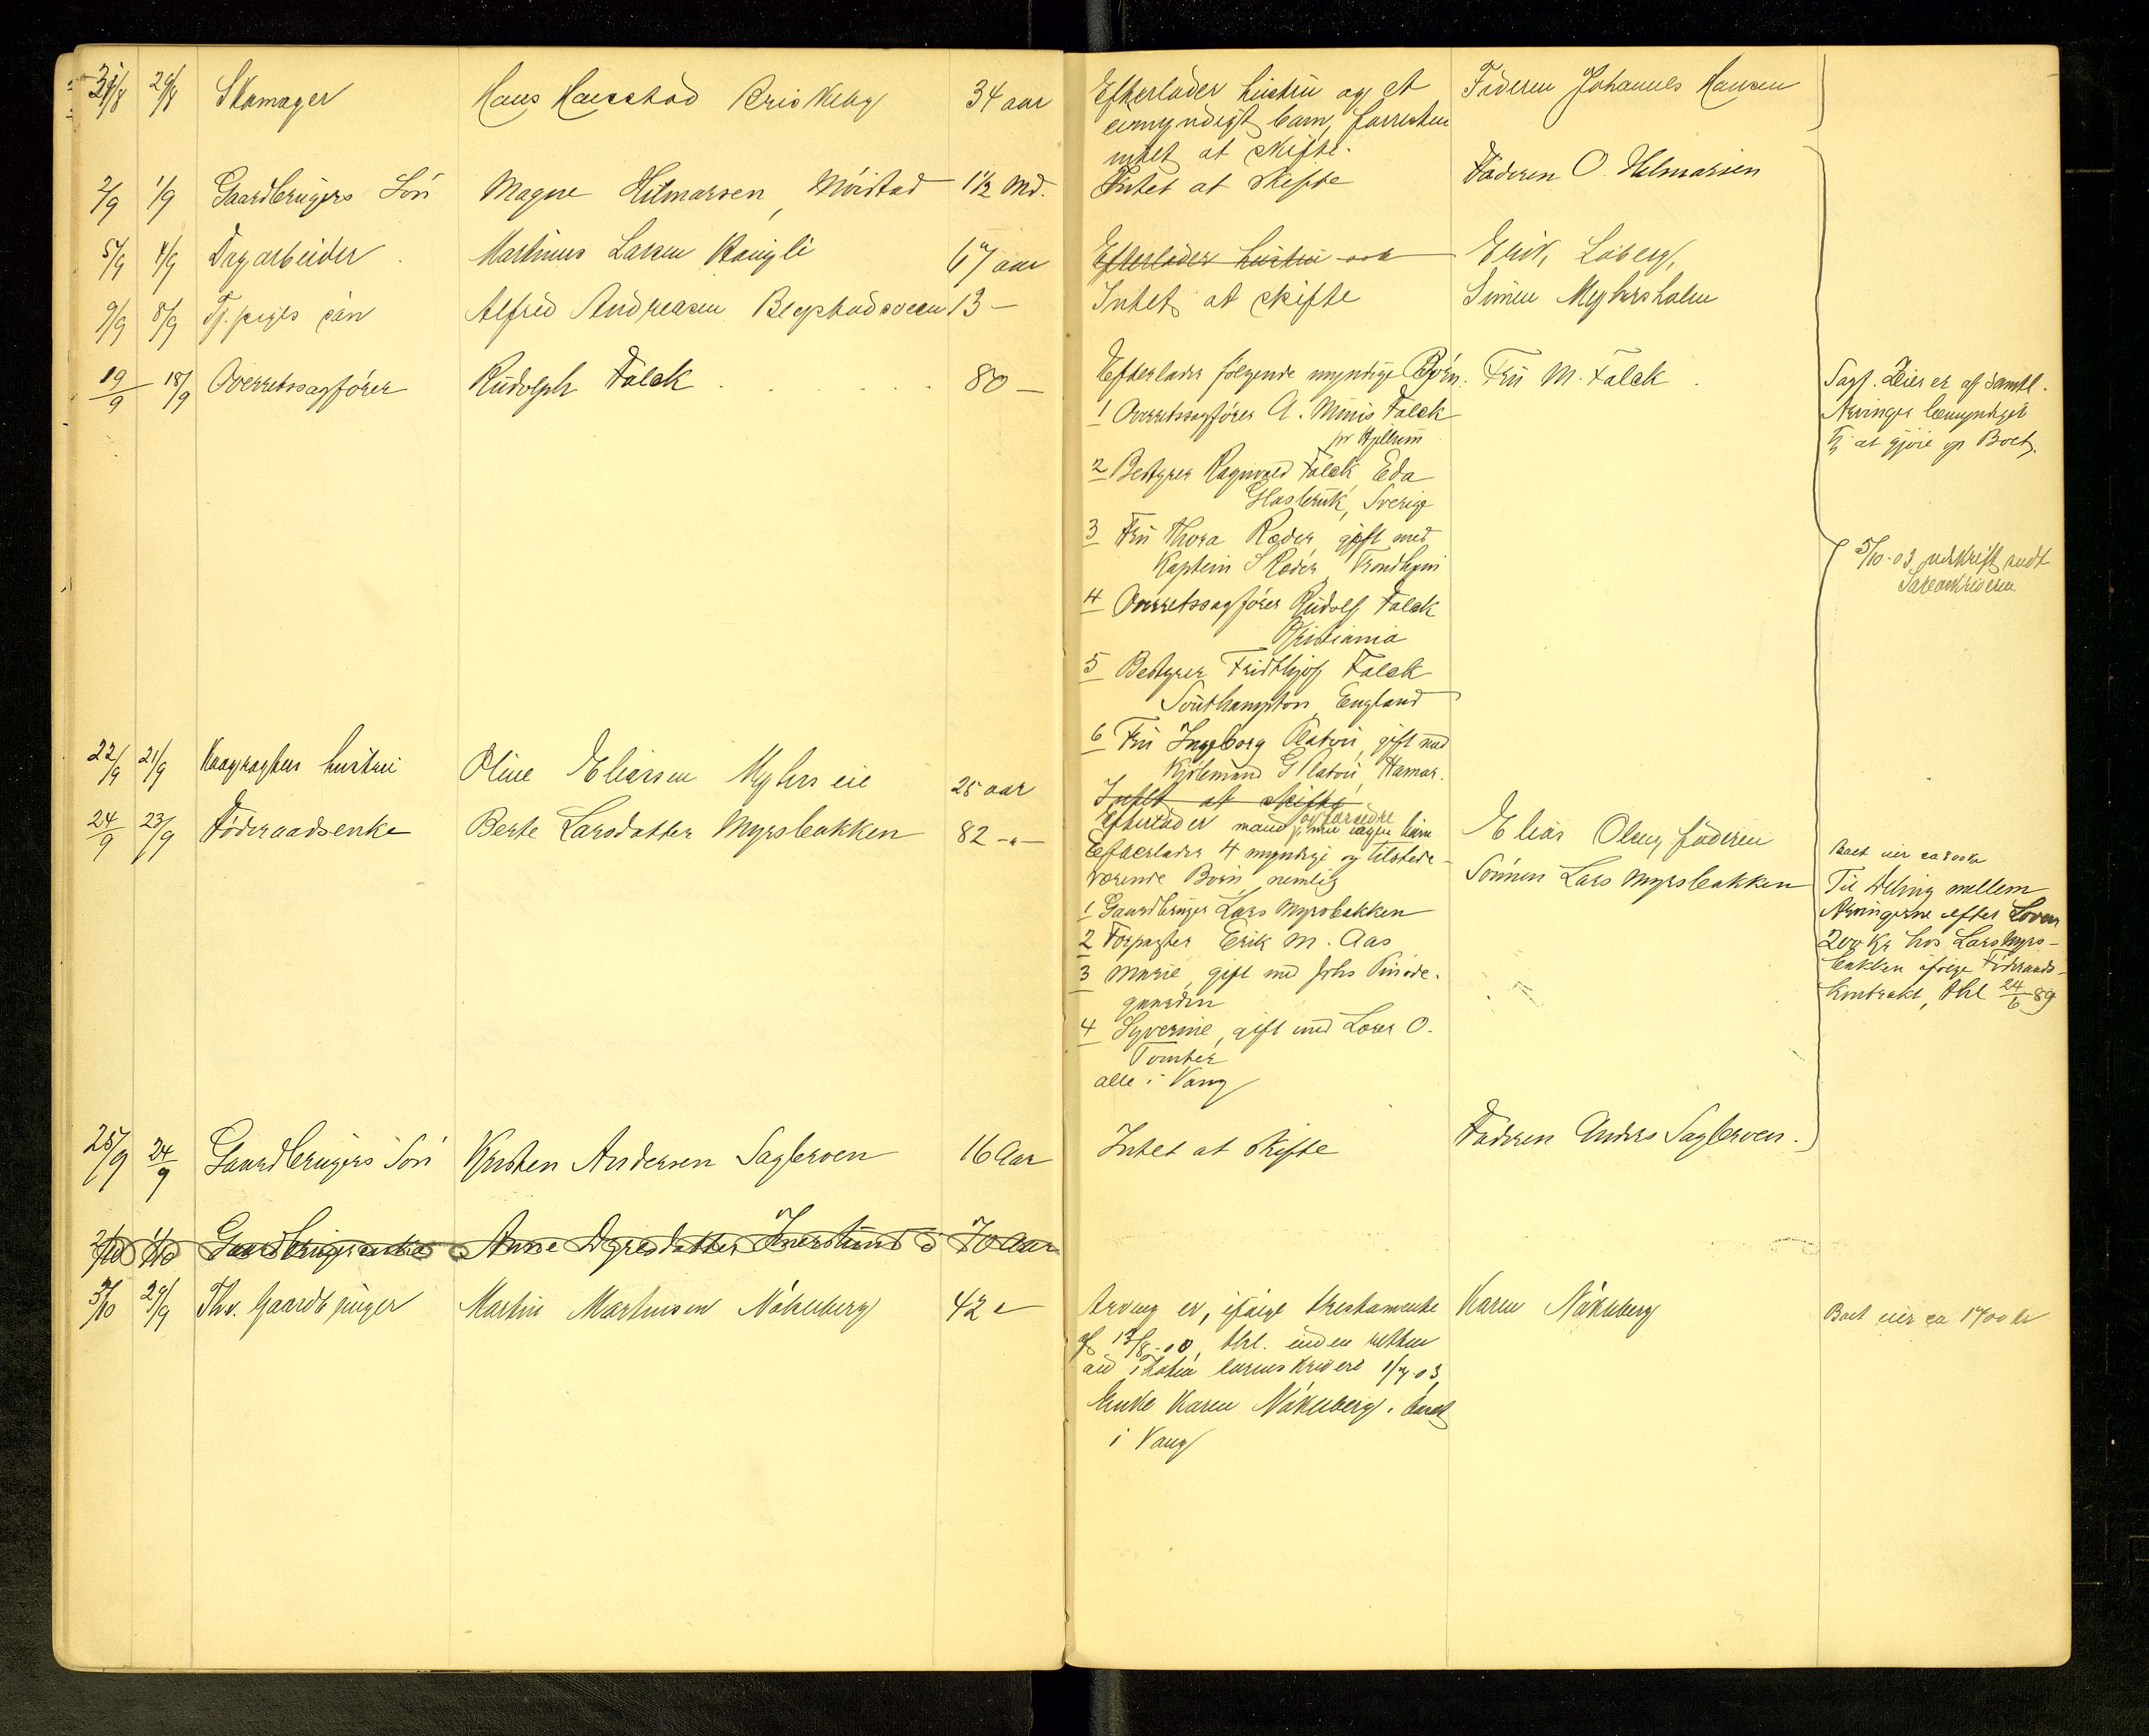 31/8 29/8 Skomager Hans Hansstad Briskeby 34 aar
2/9 1/9 Gaardbrugers Søn Magne Hilmarsen, Møistad 1½ Md.
5/9 4/9 Dagarbeider Martinus Larsen 67 aar
9/9 8/9 Tj. piges søn Alfred Andreasen 13 —
19/9 18/9 Overretssagfører Rudolph Falck 80 —
22/9 21/9 hustru Oline Eliasen Myhrs eie 25 aar
24/9 23/9 Føderaadsenke Berte Larsdatter Myrsbakken 82 -"-
25/9 24/9 Gaardbrugers Søn Kristen Andersen Sagberven 16 Aar
2/10 1/10 Gaardbrugerenke Anne 70 Aar
3/10 29/9 Fhv. Gaardbruger Martin Martinsen Nökleberg 42 "
Efterlader hustru og et
umyndigt barn, forresten
intet at skifte.
Intet at Skifte
Efterlader hustru
Intet at skifte
Efterlader følgende myndige Børn:
1 Overretssagfører A. Minis Falck
pr Hjellum
2 Bestyrer Ragnvald Falck, Eda
Glasbruk, Sverige
3 Fru Thora Ræder, gift med
Kaptein S Ræder, Trondhjem
4 Overretssagfører Rudolf Falck
Kristiania
5 Bestyrer Fridthjof Falck
Southampton, England
6 Fru Ingeborg Platou, gift med
Kjøbmand G Platou, Hamar.
Intet at skifte
og forældre
Efterlader mand, men ingen børn
Efterlader 4 myndige og tilstede-
værende Børn, nemlig
1 Gaardbruger Lars Myrsbakken
2 Forpagter Erik M. Aas
3 Marie, gift med Johs
gaarden
4 Syverine, gift med Lars O.
Tomter
alle i Vang
Intet at Skifte
Arving er, ifølge testamente
af 13/8-00, thl. inden retten
1/7-03,
Enke Karen Nökleberg,
i Vang
Faderen Johannes Hansen
Faderen O. Hilmarsen
Erik Løberg,
Simen Myhrsholen
Fru M. Falck
Elias Olsen, faderen
Sønnen Lars Myrsbakken
Faderen Anders Sagberven.
Karen Nökleberg
Sagf. Zeier er af samtl.
Arvinger bemyndiget
til at gjøre op Boet.
5/10-03 udskrift sendt
Sorenskriveren
Boet eier ca 800 kr
Til deling mellem
Arvingerne efter Loven
200 Kr hos Lars Myrs-
bakken ifølge Føderaads-
kontrakt, thl 24/6 89
Boet eier ca 1700 kr